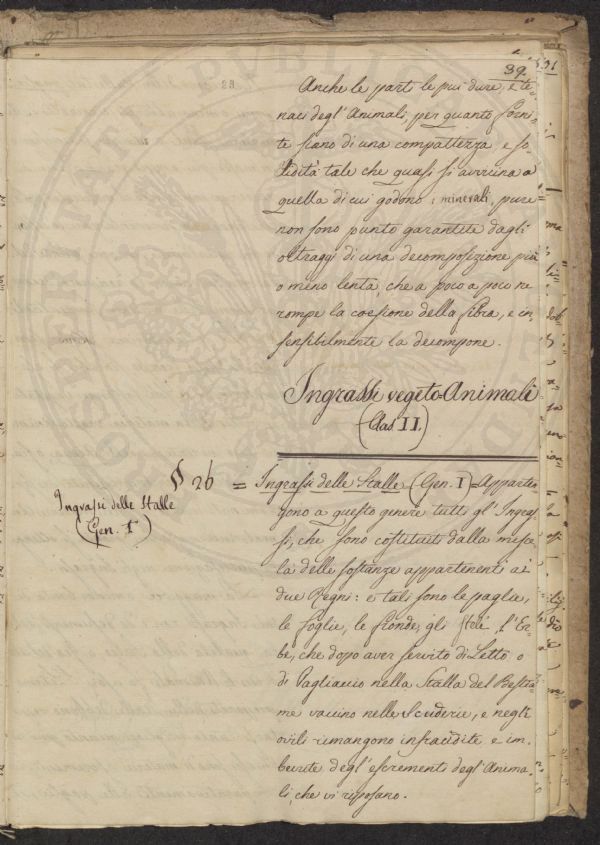 39.
Anche le parti le piu dure, e te-
naci degl' Animali, per quanto forni-
te siano di una compattezza e so-
lidità tale che quasi si avvicina a
quella di cui godono i minerali, pure
non sono punto garantite dagli
oltraggi di una decomposizione più
o meno lenta, che a poco a poco ne
rompe la coesione della fibra, e in-
sensibilmente la decompone.
Ingrassi vegeto-Animali
(Clas II.)
§ 26 = Ingrassi delle Stalle (Gen. I) = Apparten-
Ingrassi delle Stalle
(Gen. I)
gono a questo genere tutti gl' Ingras-
si, che sono costituiti dalla misce-
la delle sostanze appartenenti ai
due Regni: e tali sono le paglie,
le foglie, le fronde, gli l'Er-
be, che dopo aver servito di Letto o
di Pagliaccio nella Stalla del Bestia-
me vaccino nelle Scuderie, e negli
ovili rimangono infracidite e im-
bevute degl' escrementi degl' Anima-
li, che vi riposano.